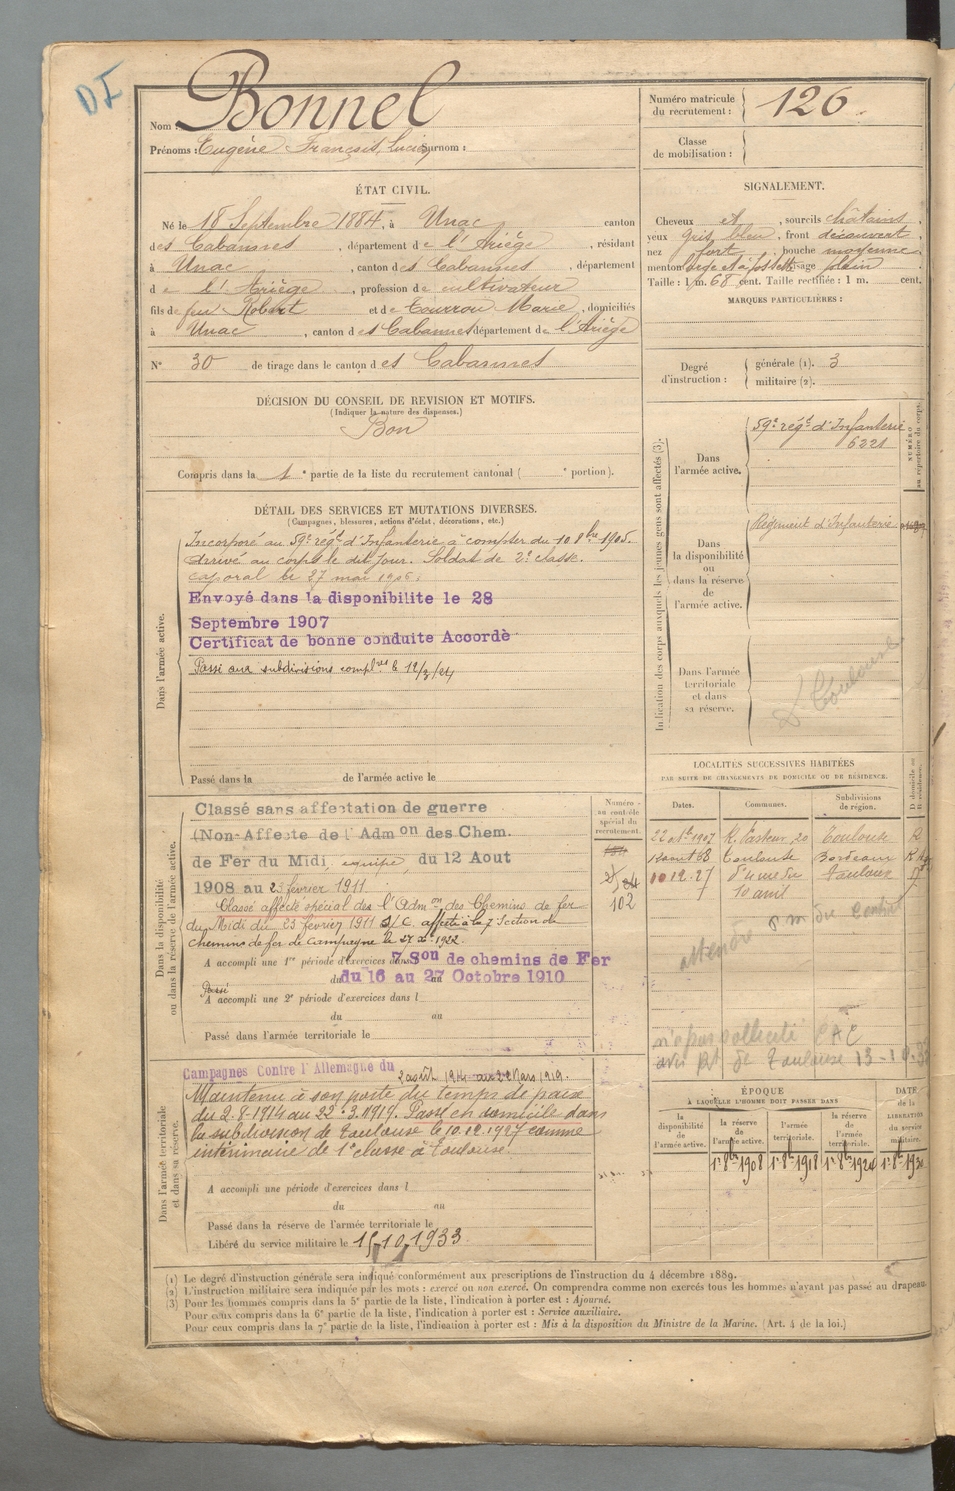 DI
Nom : Bonnel
Prénoms : Eugène François, Lucien Surnom :
Numéro matricule du recrutement : 126
Classe de mobilisation :
ÉTAT CIVIL.
Né le 18 Septembre 1884, à Unac canton
des Cabannes, département de l'Ariège, résidant
à Unac, canton des Cabannes, département
de l'Ariège, profession de cultivateur
fils de feu Robert et de Tourrou Marie, domiciliés
à Unac, canton des Cabannes département de l'Ariège
N° 30 de tirage dans le canton des Cabannes
SIGNALEMENT.
Cheveux et, sourcils châtains,
yeux gris bleu, front découvert,
nez fort, bouche moyenne,
menton large et à fossette visage plein
Taille : 1 m. 68 cent. Taille rectifiée : 1 m. cent.
MARQUES PARTICULIÈRES :
Degré d'instruction : générale (1). 3
militaire (2).
DÉCISION DU CONSEIL DE REVISION ET MOTIFS.
(Indiquer la nature des dispenses.)
Bon
Compris dans la 1e partie de la liste du recrutement cantonal ( e portion).
DÉTAIL DES SERVICES ET MUTATIONS DIVERSES.
(Campagnes, blessures, actions d'éclat, décorations, etc.)
Dans l'armée active.
Incorporé au 59e régt d'Infanterie à compter du 10 8bre 1905.
Arrivé au corps le dit jour. Soldat de 2e classe.
Caporal le 27 mai 1906.
Envoyé dans la disponibilite le 28
Septembre 1907
Certificat de bonne conduite Accordè
Passé aux subdivisions complres le 12/3/24
Passé dans la de l'armée active le
Indication des corps auxquels les jeunes gens sont affectés (3).
NUMÉRO au répertoire du corps.
Dans l'armée active.
59e régt d'Infanterie
6221
Dans la disponibilité ou dans la réserve de l'armée active.
Régiment d'Infanterie
Dans l'armée territoriale et dans sa réserve.
Toulouse
Dans la disponibilité ou dans la réserve de l'armée active.
Classé sans affectation de guerre
(Non-Affecte de l'Admon des Chem.
de Fer du Midi, equipe, du 12 Aout
1908 au 23 février 1911.
Classé affecté spécial des l'Admon des Chemins de fer
du Midi du 23 février 1911 S/C. affecté à la 7 Section de
chemins de fer de Campagne le 27 1922.
A accompli une 1re période d'exercices dans 7 Son de chemins de Fer
du 16 au 27 Octobre 1910
Passé
A accompli une 2e période d'exercices dans l
du au
Passé dans l'armée territoriale le
Numéro au contrôle spécial du recrutement.
102
LOCALITÉS SUCCESSIVES HABITÉES
PAR SUITE DE CHANGEMENTS DE DOMICILE OU DE RÉSIDENCE.
Dates. Communes. Subdivisions de région. D domicile ou R résidence.
22 1907 R. Pasteur, 20 Toulouse R
Toulouse Bordeaux R
10.12.27 8 rue du 10 avril Toulouse D
attendre
n'a pas sollicité CAC
avis Rt de Toulouse 13-10-33
Dans l'armée territoriale et dans sa réserve.
Campagnes Contre l'Allemagne du 2 août 1914 au 22 Mars 1919.
Maintenu à son poste du temps de paix
du 2-8-1914 au 22-3-1919. Passé en domicile dans
la subdivision de Toulouse le 10.12.1927 comme
intérimaire de 1e classe à Toulouse.
A accompli une période d'exercices dans l
du au
Passé dans la réserve de l'armée territoriale le
Libéré du service militaire le 15-10-1933
ÉPOQUE
À LAQUELLE L'HOMME DOIT PASSER DANS
la disponibilité de l'armée active. la réserve de l'armée active. l'armée territoriale. la réserve de l'armée territoriale. DATE de la LIBÉRATION du service militaire.
1er 8bre 1908 1er 8bre 1918 1er 8bre 1924 1er 8bre
(1) Le degré d'instruction générale sera indiqué conformément aux prescriptions de l'instruction du 4 décembre 1889.
(2) L'instruction militaire sera indiquée par les mots : exercé ou non exercé. On comprendra comme non exercés tous les hommes n'ayant pas passé au drapeau.
(3) Pour les hommes compris dans la 5e partie de la liste, l'indication à porter est : Ajourné.
Pour ceux compris dans la 6e partie de la liste, l'indication à porter est : Service auxiliaire.
Pour ceux compris dans la 7e partie de la liste, l'indication à porter est : Mis à la disposition du Ministre de la Marine. (Art. 4 de la loi.)